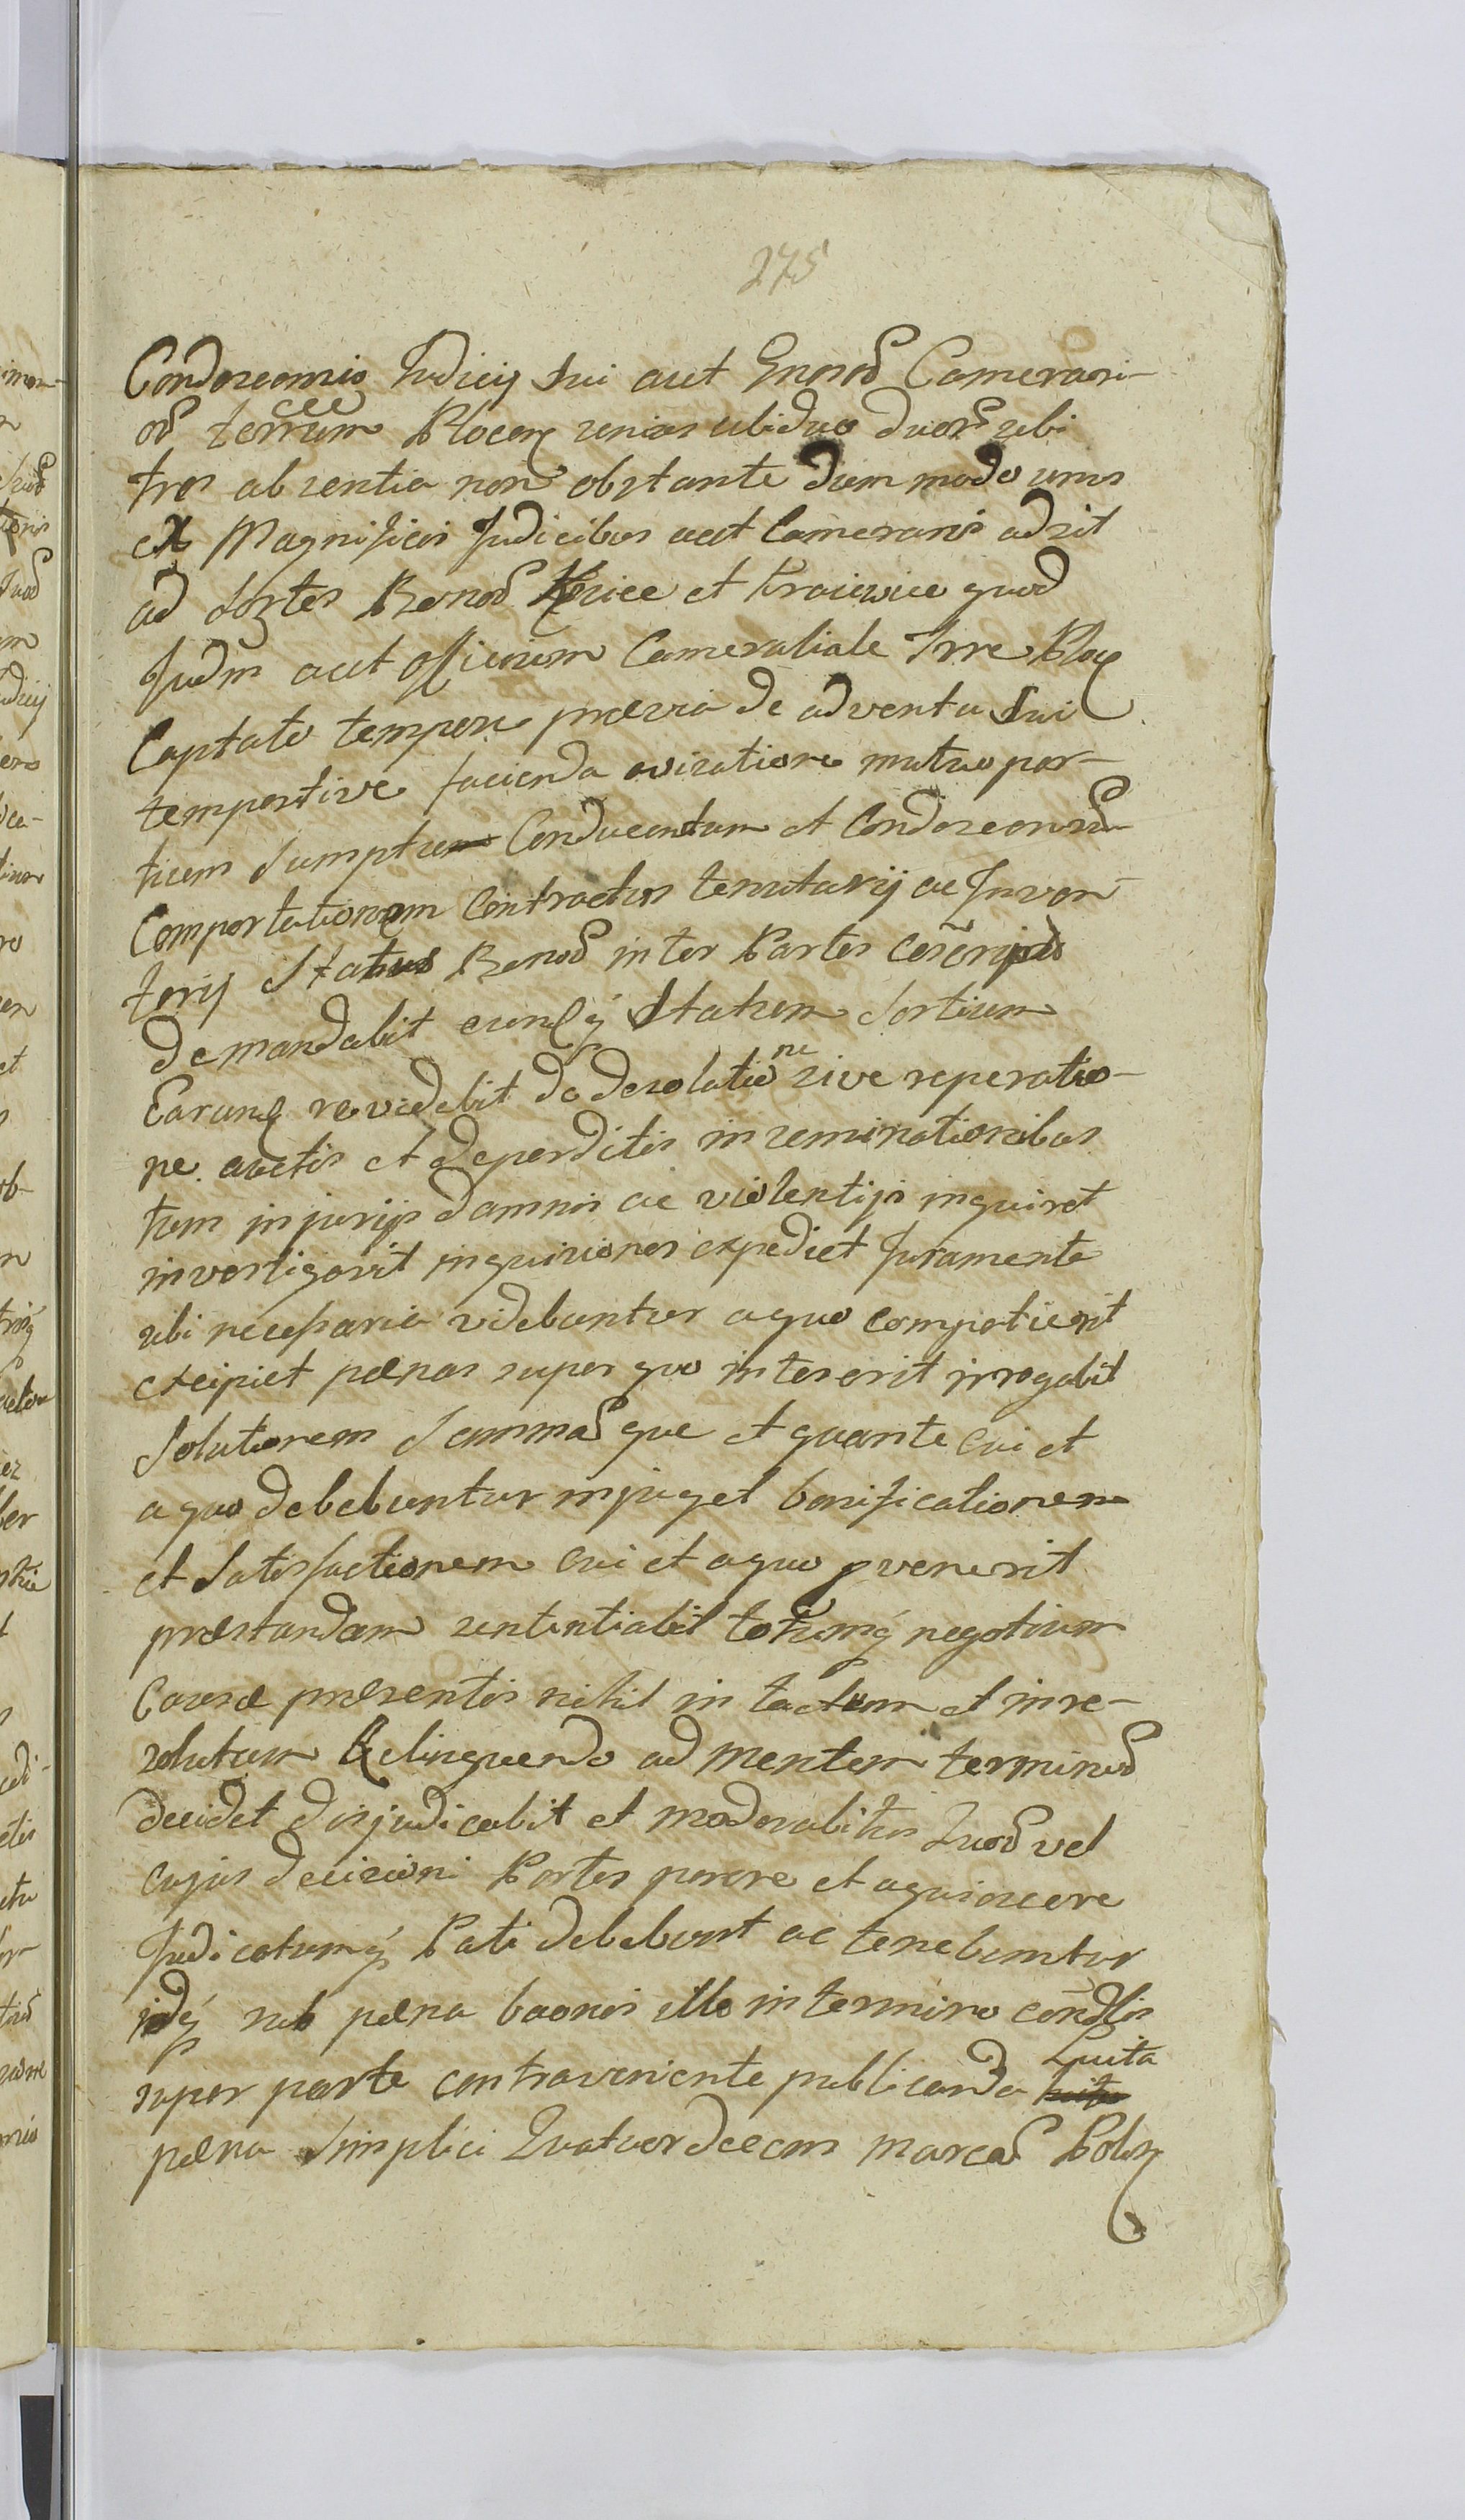 275
Condescensio Judicij Sui aut Gnosor Camerari-
or Terrum Plocen unius ubi duo duor ubi
tres absentia non obstante dum modo unus
ex Magnificis Judicibus aut Camerarijs adsit
ad Sortes Bonor et Kraiewice quod
Judm aut officium Camerariale Trre Ploc
Captato tempore prævia de adventu Sui
tempestive facienda avisatione mutuo par-
tium Sumptu Conducentum et Condescensur
Comportationem Contractus tenutarij ac Inven-
torij Status Bonor inter Partes
demandabit eumq Statum Sortium
Earunq revidebit de desolatione sive reperatio-
ne auctis et deperditis inseminationibus
tum injurijs damnis ac violentijs inquiret
investigavit inquisiones expediet Juramenta
ubi necessaria videbuntur a quo competierit
excipiet pænas super quo intererit irrogabit
Solutionem Summar que et quante cui et
a quo debebuntur injuget bonificationem
et Satisfactionem cui et a quo pvenerit
præstandam sententiabit totumq negotium
Causæ præsentis nihil in tactum et inre-
solutum Relinquendo ad mentem terminor
decidet disjudicabit et moderabitur Quor vel
cujus decisioni Partes parere et aquiescere
Judicatumq Pati debebunt ac tenebuntur
idq sub pæna baonis illo in termino condlis
super parte contraveniente publicanda Luita
pæna Simplici Quatuordecem marcar Poln